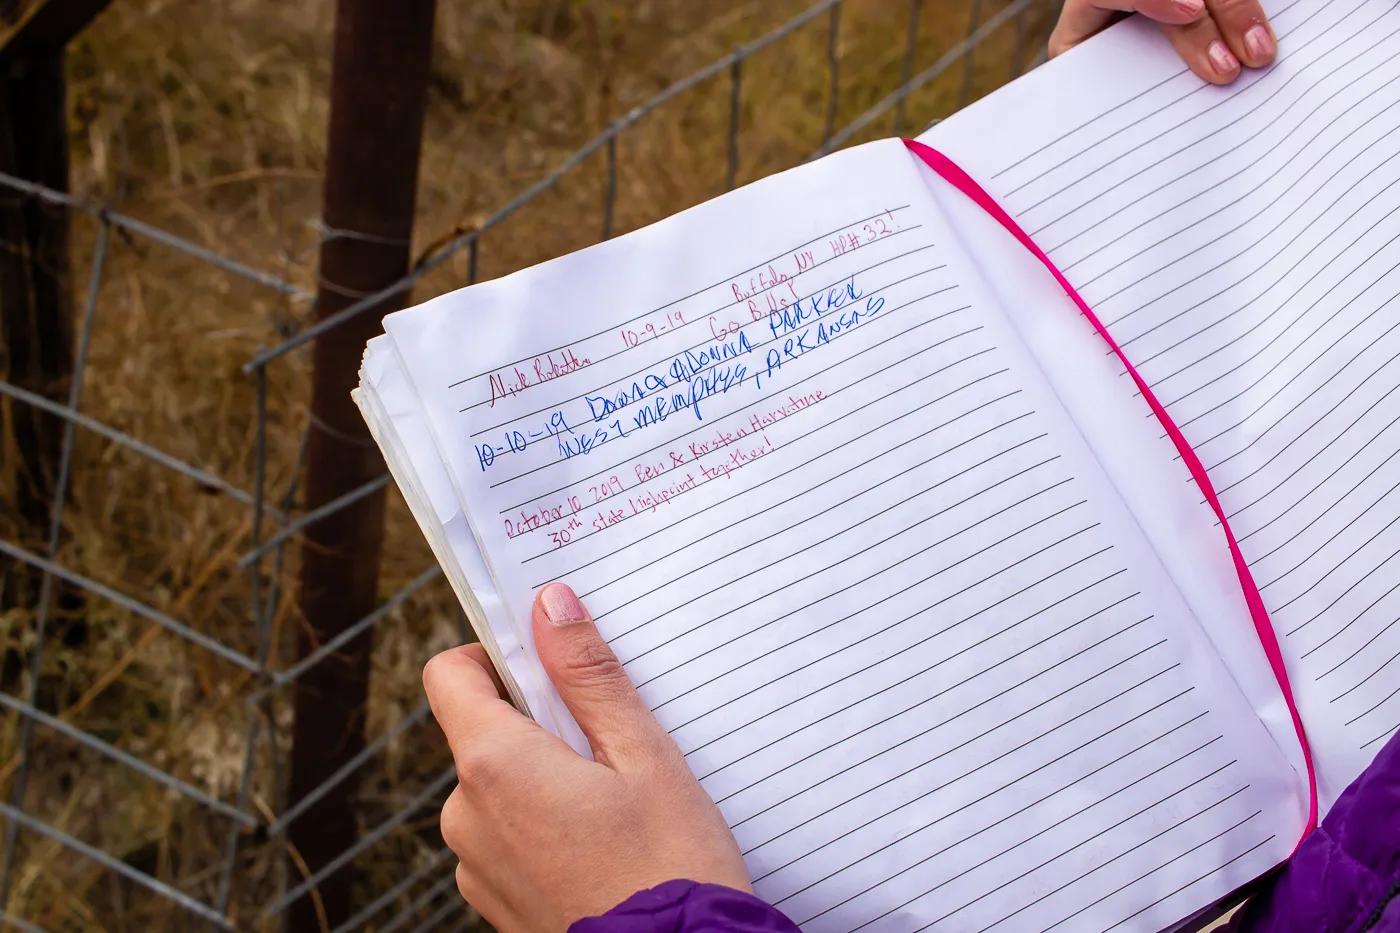 Nick 10-9-19 Buffalo, NY HP# 32!
Go Bills!
10-10-19 DONNA PARKER
WEST MEMPHIS, ARKANSAS
October 10 2019 Ben & Kirsten Harvatine
30th state highpoint together!